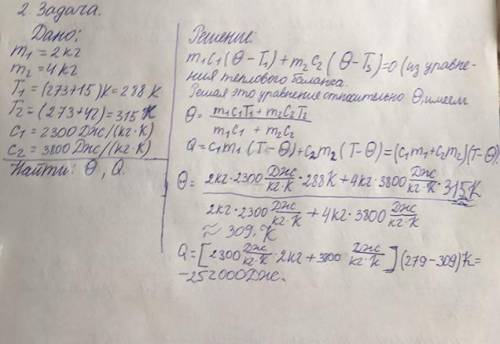 2. Задача.
Дано:
m₁ = 2 кг
m₂ = 4 кг
T₁ = (273+15)K = 288 K
T₂ = (273+42) = 315 K
c₁ = 2300 Дж/(кг·К)
c₂ = 3800 Дж/(кг·К)
Найти: Θ, Q.
Решение
m₁c₁(Θ - T₁) + m₂c₂(Θ - T₂) = 0 (из уравне-
ния теплового баланса.
Решая это уравнения относительно Θ, имеем
Θ = (m₁c₁T₁ + m₂c₂T₂) / (m₁c₁ + m₂c₂)
Q = c₁m₁(T - Θ) + c₂m₂(T - Θ) = (c₁m₁ + c₂m₂)(T - Θ)
Θ = 2кг·2300 Дж/кг·К · 288 К + 4кг·3800 Дж/кг·К · 315К
2кг·2300 Дж/кг·К + 4кг·3800 Дж/кг·К
≈ 309. К
Q = [2300 Дж/кг·К · 2кг + 3800 Дж/кг·К] (279 - 309)К =
-252000 Дж.